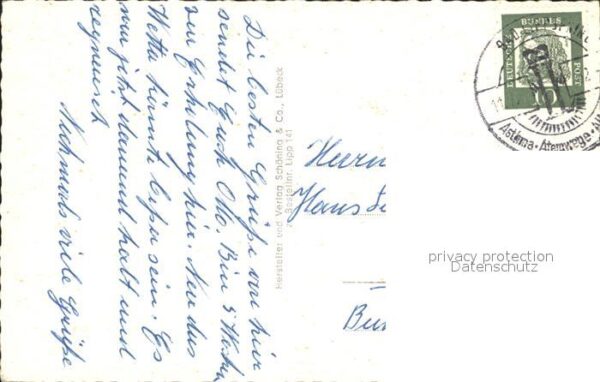 Die besten Grüße von hier
sendet Euch Otto. Bin 3 Wochen
zur Erholung hier. Nur das
Wetter könnte besser sein. Es
war jetzt dauernd kalt und
regnerisch
Nochmals viele Grüße
Hersteller und Verlag Schöning & Co., Lübeck
Bestellnr. Lipp 141
Herrn
Hans
DEUTSCHE
BUNDES
POST
10
Asthma · Atemwege ·
privacy protection
Datenschutz